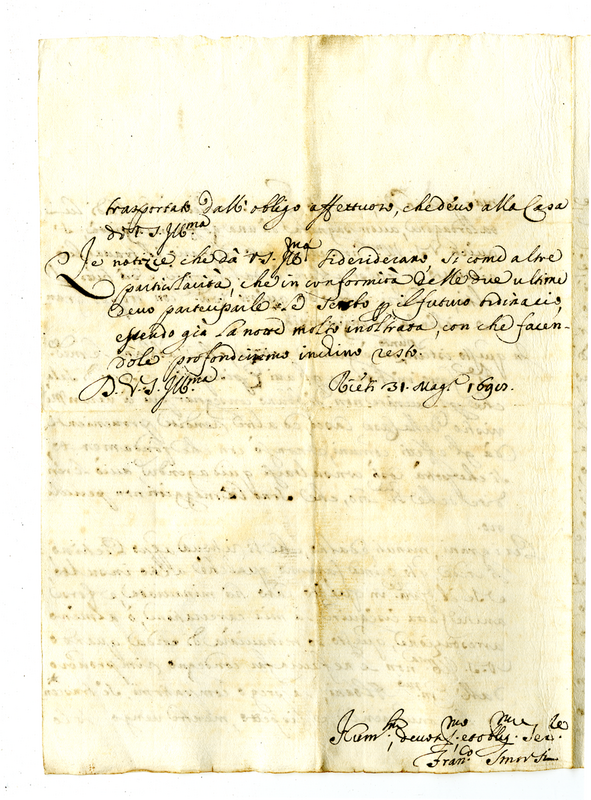 trasportato dall'obligo affettuoso, che devo alla Casa
di V. S. Ill.ma
Le notizie che da V.S. Ill.ma si desiderano, si come altre
particolarità, che in conformità delle due ultime
devo participarle p il futuro
essendo già la notte molto inoltrata, con che facen-
dole profondissimo inchino resto.
D. V. S. Ill.ma Rieti 31. Mag.o
Hum.mo, devot.mo et oblig.mo Ser.re
Fran.co